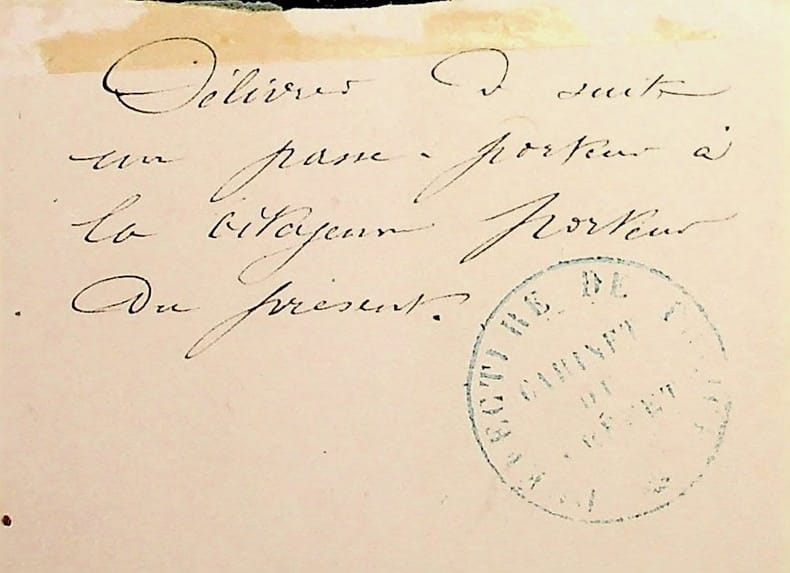 Délivrer de suite
un passe-porteur à
la citoyenne porteur
du présent.
PREFECTURE DE POLICE
CABINET
DU
PRÉFET